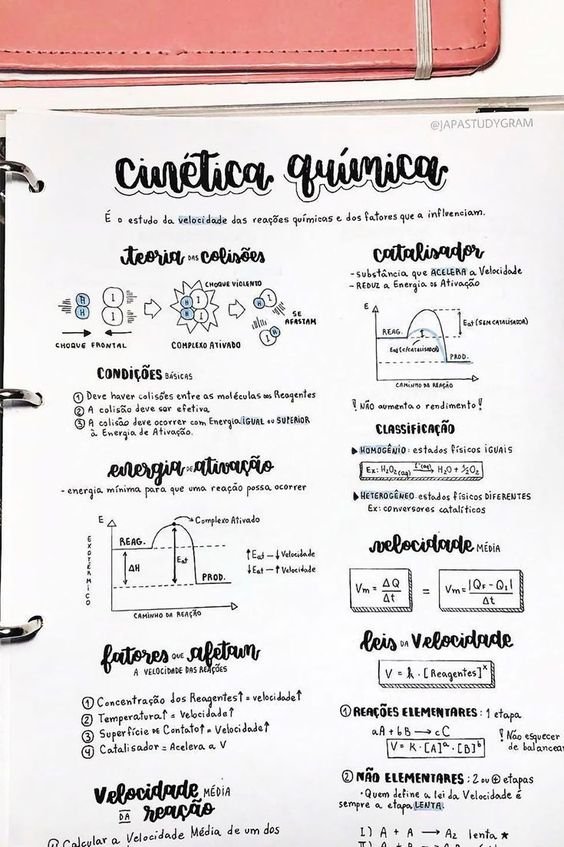 @JAPASTUDYGRAM
cinética química
É o estudo da velocidade das reações químicas e dos fatores que a influenciam.
teoria DAS colisões
CHOQUE VIOLENTO
H I
H I
H I
H I
H I
H I
SE
AFASTAM
CHOQUE FRONTAL
COMPLEXO ATIVADO
CONDIÇÕES BÁSICAS
① Deve haver colisões entre as moléculas dos Reagentes
② A colisão deve ser efetiva
③ A colisão deve ocorrer com Energia IGUAL ou SUPERIOR
à Energia de Ativação.
energia DE ativação
- energia mínima para que uma reação possa ocorrer
E
Complexo Ativado
EXOTÉRMICO
REAG.
ΔH
Eat
PROD.
CAMINHO DA REAÇÃO
↑Eat – ↓ Velocidade
↓Eat – ↑ Velocidade
fatores QUE afetam
A VELOCIDADE DAS REAÇÕES
① Concentração dos Reagentes↑ = velocidade↑
② Temperatura↑ = Velocidade↑
③ Superfície DE Contato↑ = Velocidade↑
④ Catalisador = Acelera a V
Velocidade MÉDIA
DA reação
① Calcular a Velocidade Média de um dos
catalisador
- substância que ACELERA a Velocidade
- REDUZ a Energia DE Ativação
E
REAG.
Eat (SEM CATALISADOR)
Eat (C/CATALISADOR)
PROD.
CAMINHO DA REAÇÃO
! NÃO aumenta o rendimento !
CLASSIFICAÇÃO
▶ HOMOGÊNIO: estados físicos IGUAIS
Ex: H₂O₂(aq) I⁻(aq) → H₂O + ½O₂
▶ HETEROGÊNEO: estados físicos DIFERENTES
Ex: conversores catalíticos
velocidade MÉDIA
Vm = ΔQ/Δt = Vm = |QF - QI|/Δt
leis DA Velocidade
V = k . [Reagentes]ˣ
① REAÇÕES ELEMENTARES: 1 etapa
aA + bB → cC
V = K . [A]ᵃ . [B]ᵇ
! Não esquecer
de balancear
② NÃO ELEMENTARES: 2 ou ⊕ etapas
• Quem define a lei da Velocidade é
sempre a etapa LENTA.
I) A + A → A₂ lenta ★